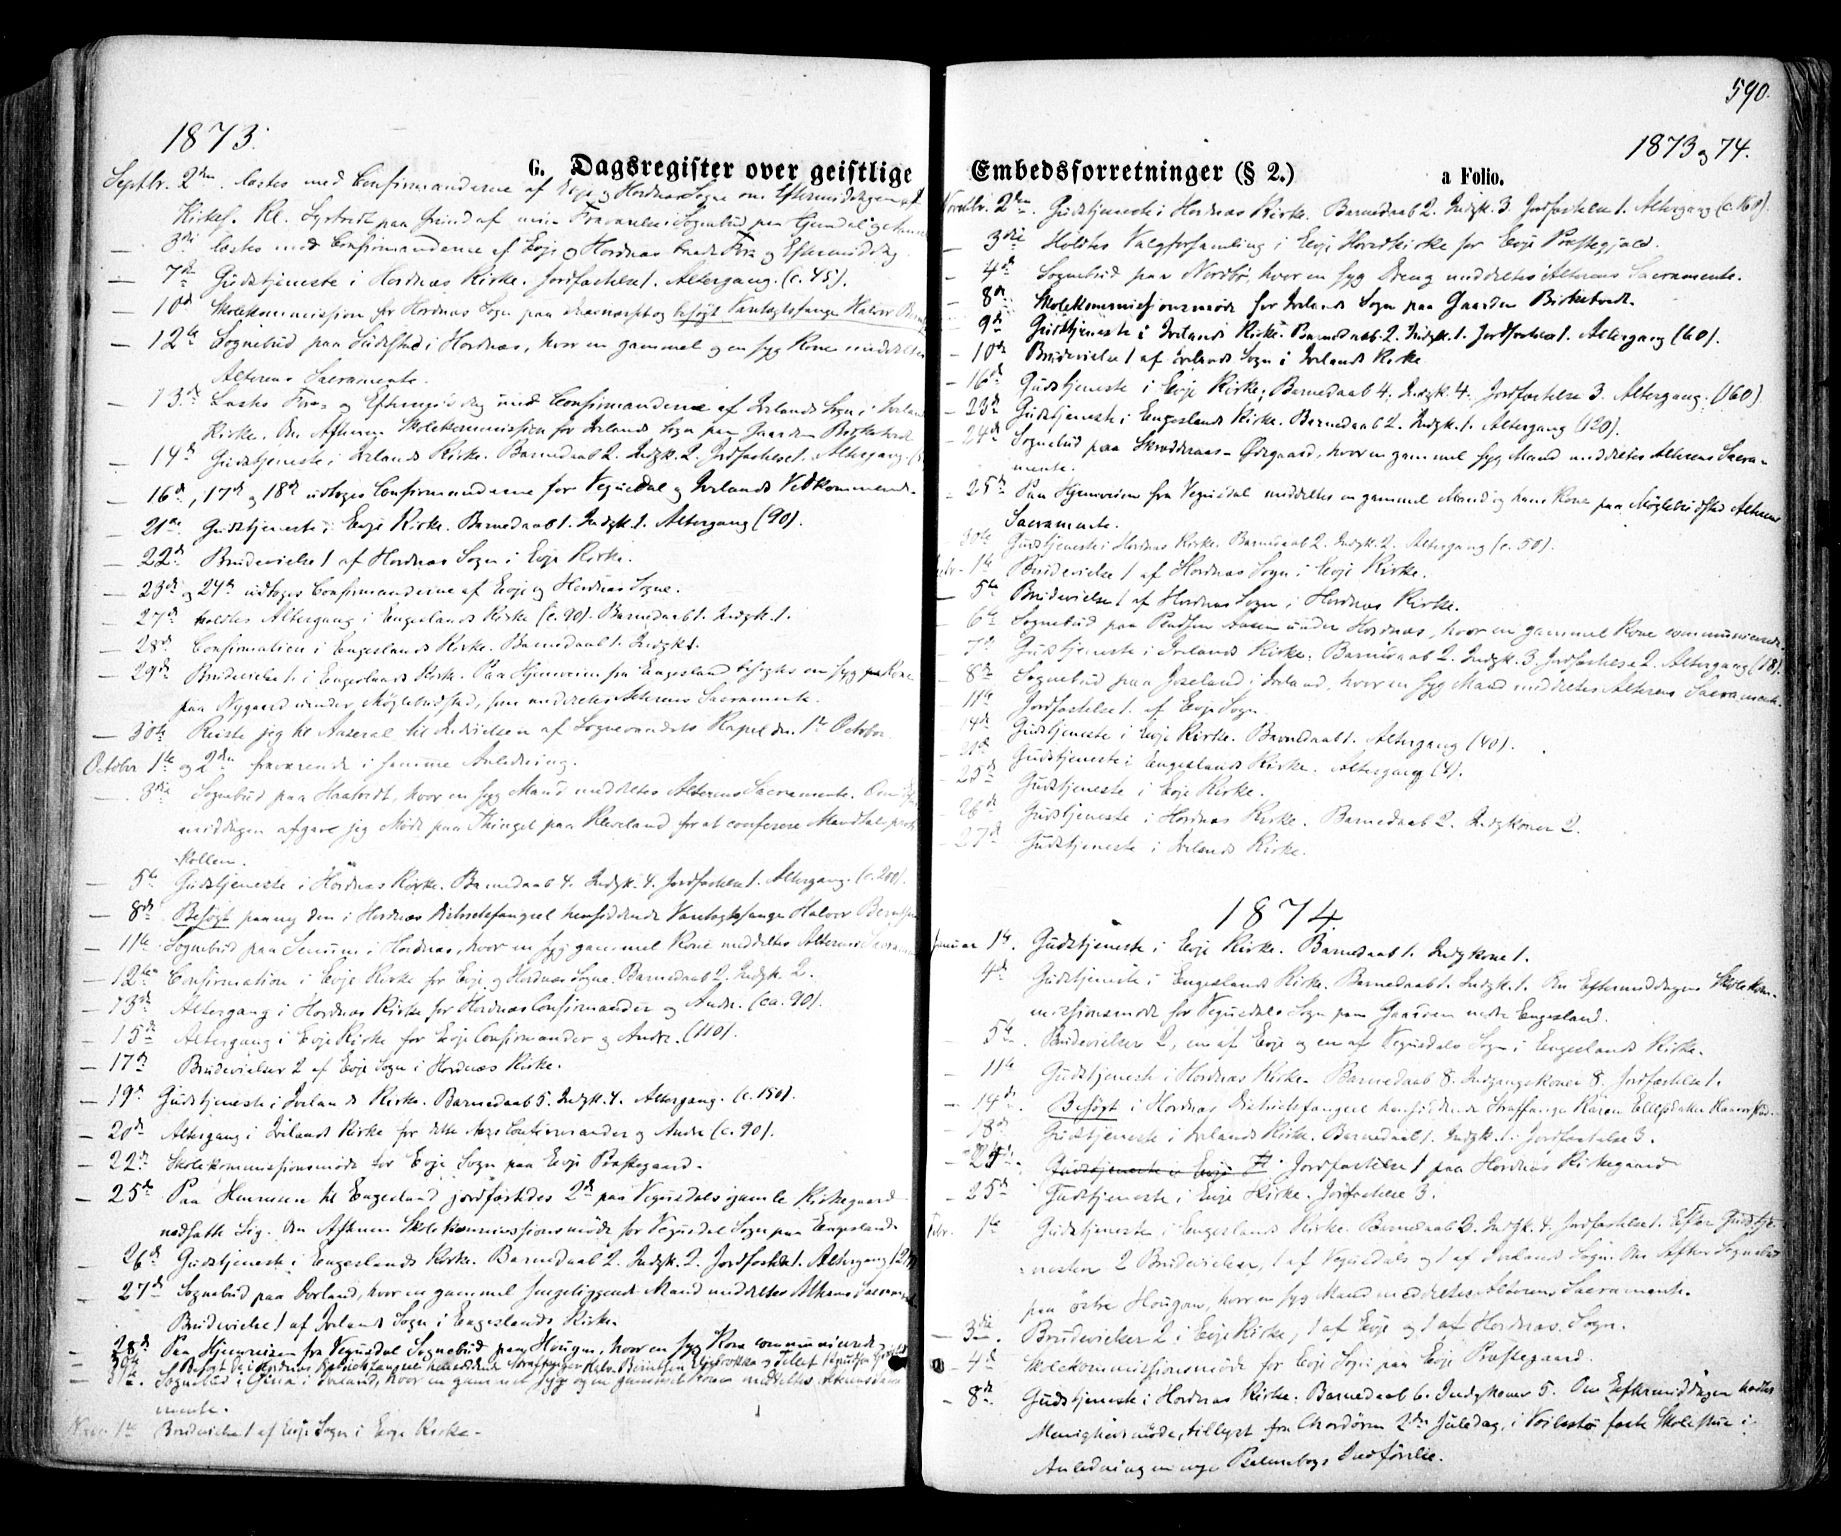 590.
1873.
1873 og 74.
G. Dagsregister over geistlige Embedsforretninger (§ 2.)
a Folio.
Septbr. 2den. læstes med Confirmanderne af Evje og Hordnæs Sogne om Eftermiddagen
Kirkes. Kl.
— 3die læstes med Confirmanderne af Evje og Hordnæs baade For og Eftermiddag.
— 7de Gudstjeneste i Hordnæs Kirke. Jordfæstelse 1. Altergang. (c. 45).
— 10de Skolekommission for Hordnæs Sogn paa og besøgt Varetægtsfange Halvor
— 12te Sognebud paa i Hordnæs, hvor en gammel og en syg Kone meddeltes
Alterens Sacramente.
— 13de Læstes For og Eftermiddag med Confirmanderne af Ivelands Sogn i Iveland
Kirke. Om Aftenen Skolekommission for Ivelands Sogn paa Gaarden Birketvedt
— 14de Gudstjeneste i Ivelands Kirke. Barnedaab 2. Indgk. 2. Jordfæstelse 1. Altergang.
— 16de, 17de og 18de udtoges Confirmanderne for Vegusdal og Ivelands Vedkommende.
— 21de Gudstjeneste i Evje Kirke. Barnedaab 1. Indgk. 1. Altergang (90).
— 22de Brudevielse 1 af Hordnæs Sogn i Evje Kirke.
— 23de og 24de udtoges Confirmanderne af Evje og Hordnæs Sogne.
— 27de holdtes Altergang i Engeslands Kirke (c. 90). Barnedaab 1. Indgk. 1.
— 28de Confirmation i Engeslands Kirke. Barnedaab 1. Indgk 1.
— 29de Brudevielse 1. i Engeslands Kirke. Paa Hjemveien fra Engesland besøgtes en syg Kone
paa Nygaard under Møglebudstad, som meddeltes Alterens Sacramente.
— 30te Reiste jeg til Aaseral til Indvielsen af Sognevandets Kapel den 1ste October
October 1ste og 2den fraværende i samme Anledning.
— 3die Sognebud paa Haatvedt, hvor en syg Mand meddeltes Alterens Sacramente. Om
middagen afgave jeg Møde paa Thinget paa Kleveland for at conferere Mandtalsproto-
kollen.
— 5te Gudstjeneste i Hordnæs Kirke. Barnedaab 4. Indgk. 4. Jordfæstelse 1. Altergang. (c. 200).
— 8de Besøgt paany den i Hordnæs Districtsfængsel hensiddende Varetægtsfange Halvor
— 11te Sognebud paa Senum i Hordnæs, hvor en syg gammel Kone meddeltes Alterens
— 12te Confirmation i Evje Kirke for Evje og Hordnæs Sogne. Barnedaab 2. Indgk. 2.
— 13de Altergang i Hordnæs Kirke for Hordnæs Confirmander og Andre. (ca. 90).
— 15de Altergang i Evje Kirke for Evje Confirmander og Andre. (110).
— 17de Brudevielser 2 af Evje Sogn i Hordnæs Kirke.
— 19de Gudstjeneste i Ivelands Kirke. Barnedaab 5. Indgk. 4. Altergang. (c. 150).
— 20de Altergang i Ivelands Kirke for dette Aars Confirmander og Andre (c. 90).
— 22de Skolekommissionsmøde for Evje Sogn paa Evje Præstegaard.
— 25de Paa Henreisen til Engesland jordfæstedes 2de paa Vegusdals gamle Kirkegaard
nedsatte Lig. Om Aftenen Skolekommissionsmøde for Vegusdal Sogn paa Engesland.
— 26de Gudstjeneste i Engeslands Kirke. Barnedaab 2. Indgk. 2. Jordfæstelse 1. Altergang
— 27de Sognebud paa hvor en gammel sengeliggende Mand meddeltes Alterens Sacrament
Brudevielse 1 af Ivelands Sogn i Engeslands Kirke.
— 28de Paa Hjemreisen fra Vegusdal Sognebud paa Hougen, hvor en syg Kone communicerede
— 30te Besøgt de i Hordnæs Districtsfængsel hensiddende Straffanger
— 31te. Sognebud i Iveland, hvor en gammel syg og en gammel Kone meddeltes Alterens
mente.
Novbr. 1ste Brudevielse 1 af Evje Sogn i Evje Kirke.
Novbr. 2den. Gudstjeneste i Hordnæs Kirke. Barnedaab 2. Indgk. 3. Jordfæstelse 1. Altergang (c. 160).
— 3die Holdtes Valgforsamling i Evje Hovedkirke for Evje Præstegjæld.
— 4de Sognebud paa hvor en syg Dreng meddeltes Alterens Sacramente.
— 8de Skolekommissionsmøde for Ivelands Sogn paa Gaarden Birketvedt.
— 9de Gudstjeneste i Ivelands Kirke. Barnedaab 2. Indgk. 1. Jordfæstelse 1. Altergang (60).
— 10de Brudevielse 1 af Ivelands Sogn i Ivelands Kirke
— 16de Gudstjeneste i Evje Kirke. Barnedaab 4. Indgk. 4. Jordfæstelse 3. Altergang. (160)
— 23de Gudstjeneste i Engeslands Kirke. Barnedaab 2. Indgk. 1. Altergang (120).
— 24de Sognebud paa hvor en gammel syg Mand meddeltes Alterens Sacra-
mente.
— 25de Paa Hjemreisen fra Vegusdal meddeltes en gammel Mand og hans Kone paa Møglebudstad Alterens
Sacramente.
30te Gudstjeneste i Hordnæs Kirke. Barnedaab 2. Indgk. 2. Altergang (c. 50).
1ste Brudevielse 1 af Hordnæs Sogn i Evje Kirke.
— 5te Brudevielse 1 af Hordnæs Sogn i Hordnæs Kirke.
— 6te Sognebud paa under Hordnæs, hvor en gammel Kone communicerede
— 7de Gudstjeneste i Ivelands Kirke. Barnedaab 2. Indgk. 3. Jordfæstelse 2. Altergang (18).
— 8de Sognebud paa Joseland i Iveland, hvor en syg Mand meddeltes Alterens Sacramente.
11te Jordfæstelse 1. af Evje Sogn
14de Gudstjeneste i Evje Kirke. Barnedaab 1. Altergang (40).
21de Gudstjeneste i Engeslands Kirke. Altergang (4).
25de Gudstjeneste i Evje Kirke.
26de Gudstjeneste i Hordnæs Kirke. Barnedaab 2. Indgkoner 2.
27de Gudstjeneste i Ivelands Kirke.
1874.
Januar 1ste. Gudstjeneste i Evje Kirke. Barnedaab 1. Indgkone 1.
4de Gudstjeneste i Engeslands Kirke. Barnedaab 1. Indgk. 1. Om Eftermiddagen Skolekom-
missionsmøde for Vegusdals Sogn paa Gaarden nedre Engesland.
— 5te Brudevielser 2, en af Evje og en af Vegusdals Sogn i Engeslands Kirke.
— 11te Gudstjeneste i Hordnæs Kirke. Barnedaab 8. Indgangskoner 8. Jordfæstelse 1.
— 14de. Besøgt i Hordnæs Districtsfængsel hensiddende Straffange Karen
— 18de Gudstjeneste i Ivelands Kirke. Barnedaab 1. Indgk. 1. Jordfæstelse 3.
— Gudstjeneste i Evje Jordfæstelse 1 paa Hordnæs Kirkegaard
— 25de Gudstjeneste i Evje Kirke. Jordfæstelse 3.
Febr. 1ste Gudstjeneste i Engeslands Kirke. Barnedaab 2. Indgk. 4. Jordfæstelse 1. Efter Gudstje-
nesten 2 Brudevielser, 1 af Vegusdals og 1 af Ivelands Sogn. Om Aften Sognebud
paa østre Hougan, hvor en syg Mand meddeltes Alterens Sacramente.
— 3die. Brudevielser 2 i Evje Kirke, 1 af Evje og 1 af Hordnæs Sogn.
— 4de Skolekommissionsmøde for Evje Sogn paa Evje Præstegaard.
— 8de Gudstjeneste i Hordnæs Kirke. Barnedaab 6. Indgkoner 5. Om Eftermiddagen holdtes
Menighedsmøde, tillyst fra Chordøren 2den Juledag, i faste Skolestue i
Anledning en nye Psalmebogs Indførelse.